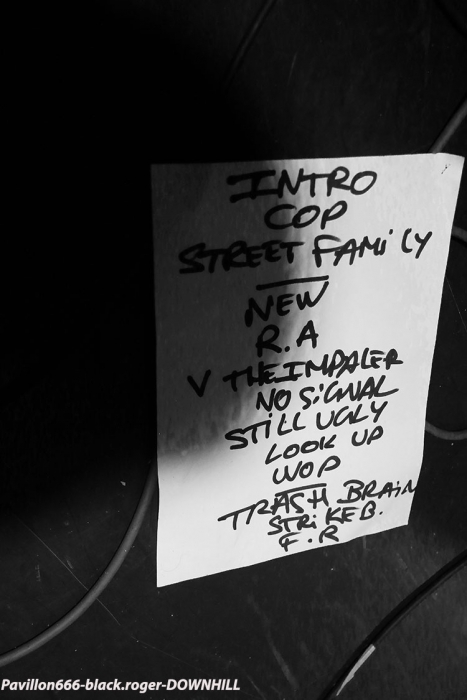 INTRO
COP
STREET FAMiLY
NEW
R.A
V THE IMPALER
NO SiGNAL
STiLL UGLY
LOOK UP
WOP
TRASH BRAiN
STRiKE B.
F.R
Pavillon666-black.roger-DOWNHILL